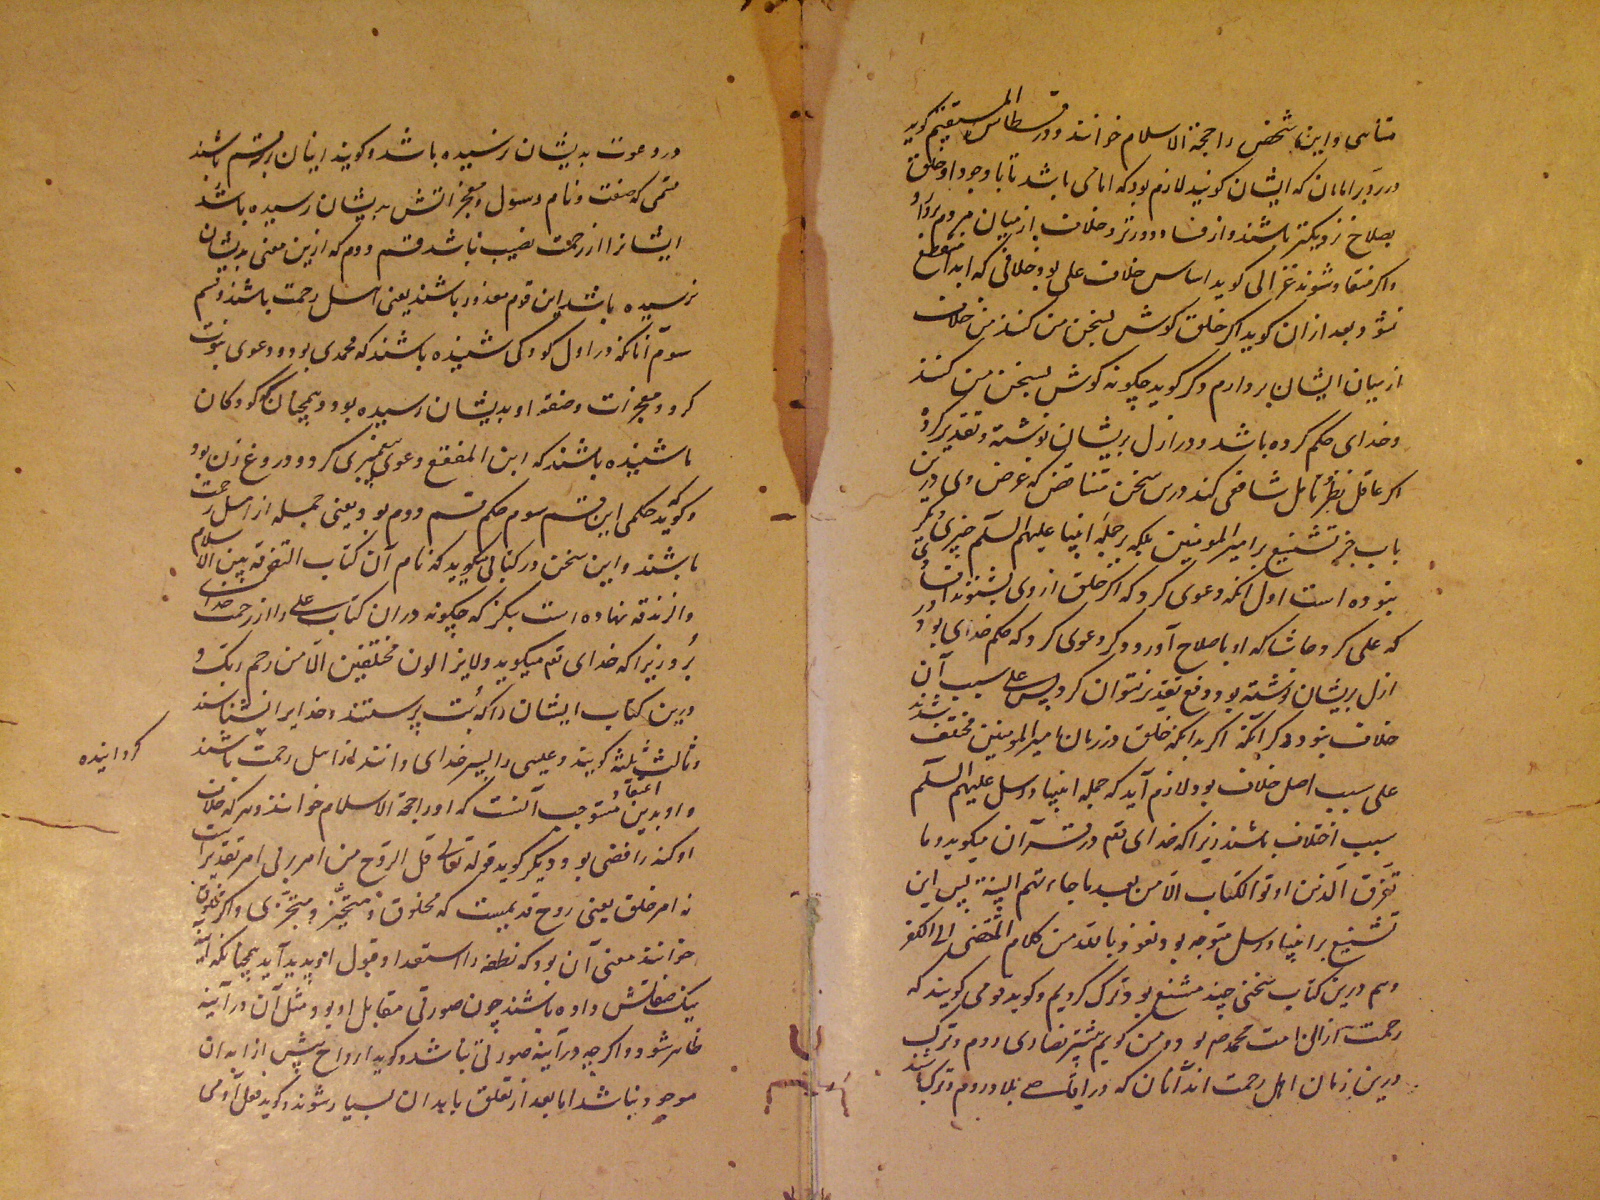 متناهی و این شخص را حجة الاسلام خوانند و در قسطاس المستقیم گوید
در رد بر امامان که ایشان گویند لازم بود که امامی باشد تا با وجود او خلق
بصلاح نزدیکتر باشند و از فساد دورتر و خلاف از میان مردم بردارد
و اکر منقاد شوند غزالی کوید اساس خلاف علی بود خلافی که ابدا منقطع
نشود و بعد از ان کوید اکر خلق کوش بسخن من کنند من خلاف
از میان ایشان بردارم و کر کوید چکونه کوش بسخن من کنند
و خدای حکم کرده باشد و در ازل بریشان نوشته و تقدیر کرده
اکر عاقل نظر و تامل شافی کند درین سخن متناقض که غرض وی درین
باب جز تشنیع بر امیر المومنین بلکه بر جمله انبیا علیهم السلم چیزی دیکر
نبوده است اول انکه دعوی کرد که اکر خلق از وی بشنوند
که علی کرد حاشا که او باصلاح آورد و دکر دعوی کرد که حکم خدای بود و در
ازل بریشان نوشته بود و دفع تقدیر نتوان کرد پس علی سبب آن
خلاف نبود دکر آنکه اکر بدانکه خلق در زمان امیر المومنین مختلف شدند
علی سبب اصل خلاف بود لازم آید که جمله انبیا و رسل علیهم السلم
سبب اختلاف باشند زیرا که خدای تعم در قرآن میکوید و ما
تفرق الذین اوتوا الکتاب الا من بعد ما جاءتهم البینة پس این
تشنیع بر انبیا و رسل متوجه بود نعوذ بالله من کلام المفضی الی الکفر
و هم درین کتاب سخنی چند مشنع بود ترک کردیم و کوید قومی کویند که
رحمت از ان امت محمد ص بود و من کویم بیشتر نصاری روم و ترک
درین زمان اهل رحمت اند آنان که در اقصی بلاد روم و ترک باشند
در دعوت بدیشان نرسیده باشد و کویند اینان بر قسم باشند
قسمی که صفت و نام رسول و معجزاتش بدیشان رسیده باشد
ایشانرا از رحمت نصیب نباشد قسم دوم که ازین معنی بدیشان
نرسیده باشد این قوم معذور باشند یعنی اهل رحمت باشند و قسم
سوم آنانکه در اول کودکی شنیده باشند که محمدی بود و دعوی نبوت
کرد و معجزات و صفة او بدیشان رسیده بود و همچنان که کودکان
ما شنیده باشند که ابن المقفع دعوی پیغمبری کرد و دروغ زن بود
و کوید حکمی این قسم سوم حکم قسم دوم بود یعنی جمله از اهل رحمت
باشند و این سخن در کتابی میکوید که نام آن کتاب التفرقه بین الاسلام
و الزندقه نهاده است بنکر که چکونه در ان کتاب علی را از رحمت خدای
برد زیرا که خدای تعم میکوید و لا یزالون مختلفین الا من رحم ربک و
درین کتاب ایشان را که بت پرستند و خدایرا نشناسند
و ثالث ثلثه کویند و عیسی را پسر خدای دانند از اهل رحمت باشند
کردانیده
و او بدین اعتقاد مستوجب آنست که او را حجة الاسلام خوانند و هر که خلاف
او کند رافضی بود و دیکر کوید قوله تعالی قل الروح من امر ربی امر تقدیر است
نه امر خلق یعنی روح قدیمست که مخلوق و متحیز و متجزی و اکر مخلوق
خوانند معنی آن بود که نطفه را استعداد قبول او پدید آید همچنانکه آینه
نیک صقلتش داده باشند چون صورتی مقابل او بود مثل آن در آینه
ظاهر شود و اکر چه در آینه صورتی نباشد و کوید ارواح پیش از ابدان
موجود نباشد اما بعد از تعلق بابدان بسیار شوند و کوید فعل آدمی